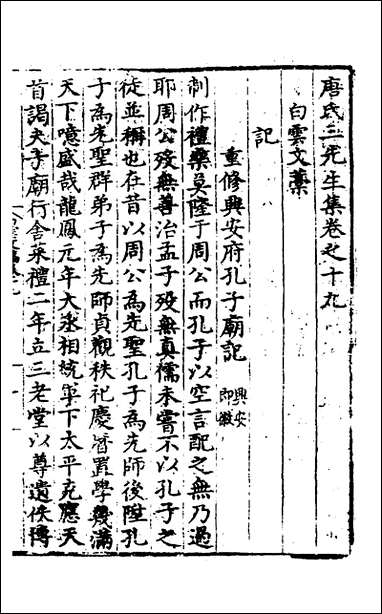 唐氏三先生集卷之十九
白雲文藁
記
重修興安府孔子廟記 興安即徽
制作禮樂莫隆于周公而孔子以空言配之無乃過
耶周公歿無善治孟子歿無真儒未嘗不以孔子之
徒並稱也在昔以周公為先聖孔子為先師後陞孔
子為先聖群弟子為先師貞觀秩祀慶曆置學幾滿
天下噫盛哉龍鳳元年大丞相統軍下太平克應天
首謁夫子廟行舍菜禮二年立三老堂以尊遺佚博